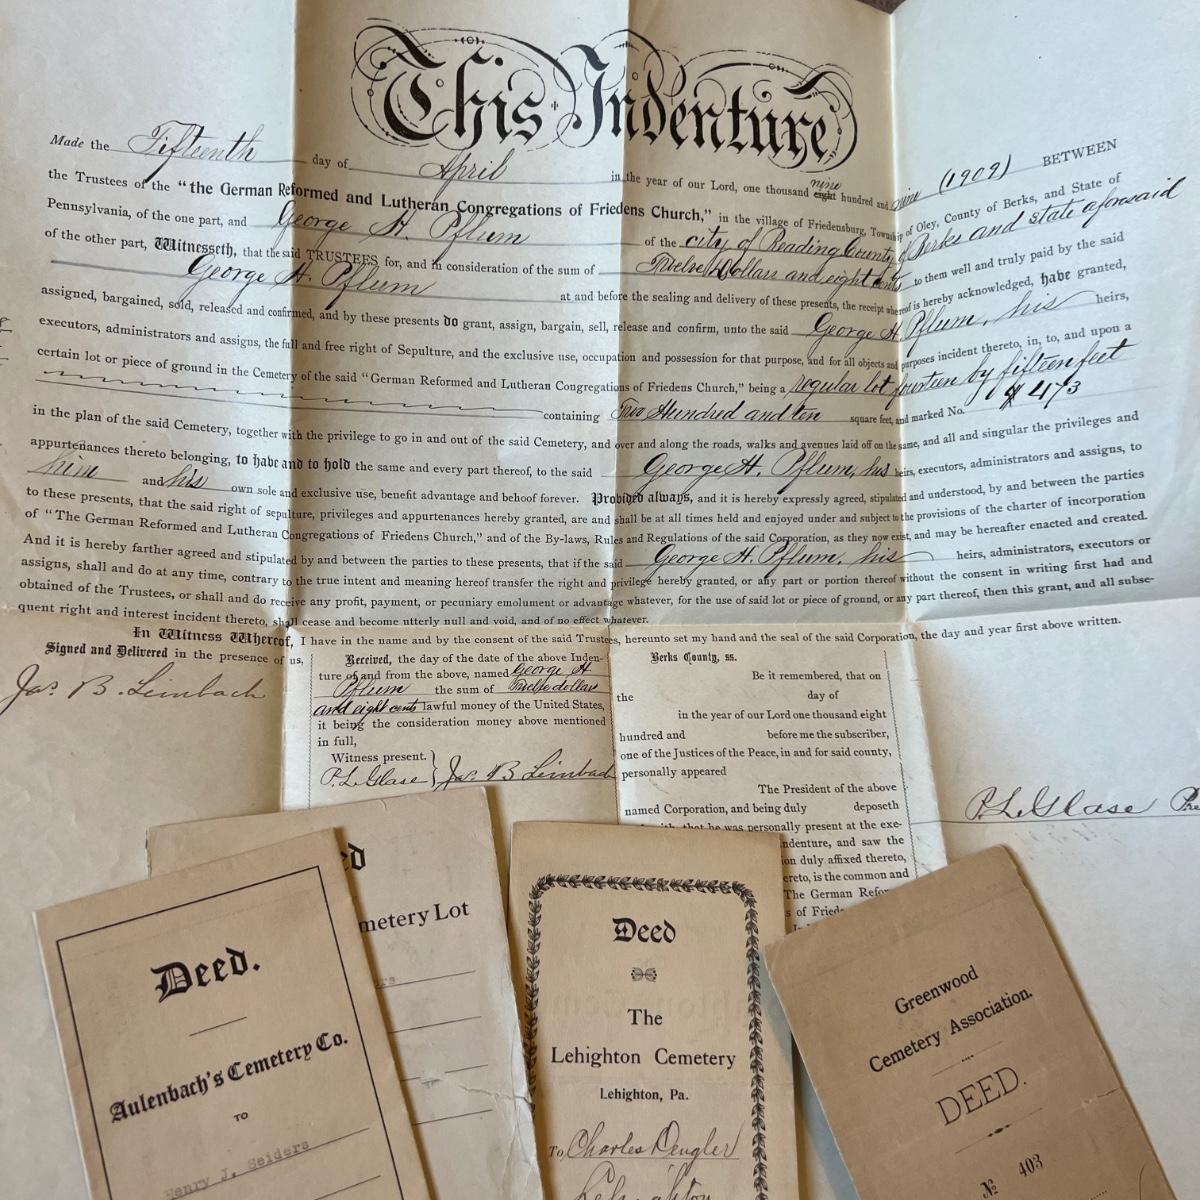 This Indenture
Made the Fifteenth day of April in the year of our Lord, one thousand eight nine hundred and nine (1909) BETWEEN
the Trustees of the "the German Reformed and Lutheran Congregations of Friedens Church," in the village of Friedensburg, Township of Oley, County of Berks, and State of
Pennsylvania, of the one part, and George H. Pflum of the city of Reading County of Berks and state aforesaid
of the other part, Witnesseth, that the said TRUSTEES for, and in consideration of the sum of Twelve Dollars and eight cents to them well and truly paid by the said
George H. Pflum at and before the sealing and delivery of these presents, the receipt whereof is hereby acknowledged, have granted,
assigned, bargained, sold, released and confirmed, and by these presents do grant, assign, bargain, sell, release and confirm, unto the said George H. Pflum, his heirs,
executors, administrators and assigns, the full and free right of Sepulture, and the exclusive use, occupation and possession for that purpose, and for all objects and purposes incident thereto, in, to, and upon a
certain lot or piece of ground in the Cemetery of the said "German Reformed and Lutheran Congregations of Friedens Church," being a regular lot fourteen by fifteen feet
containing Two Hundred and ten square feet, and marked No. 473
in the plan of the said Cemetery, together with the privilege to go in and out of the said Cemetery, and over and along the roads, walks and avenues laid off on the same, and all and singular the privileges and
appurtenances thereto belonging, to have and to hold the same and every part thereof, to the said George H. Pflum, his heirs, executors, administrators and assigns, to
him and his own sole and exclusive use, benefit advantage and behoof forever. Provided always, and it is hereby expressly agreed, stipulated and understood, by and between the parties
to these presents, that the said right of sepulture, privileges and appurtenances hereby granted, are and shall be at all times held and enjoyed under and subject to the provisions of the charter of incorporation
of "The German Reformed and Lutheran Congregations of Friedens Church," and of the By-laws, Rules and Regulations of the said Corporation, as they now exist, and may be hereafter enacted and created.
And it is hereby farther agreed and stipulated by and between the parties to these presents, that if the said George H. Pflum, his heirs, administrators, executors or
assigns, shall and do at any time, contrary to the true intent and meaning hereof transfer the right and privilege hereby granted, or any part or portion thereof without the consent in writing first had and
obtained of the Trustees, or shall and do receive any profit, payment, or pecuniary emolument or advantage whatever, for the use of said lot or piece of ground, or any part thereof, then this grant, and all subse-
quent right and interest incident thereto, shall cease and become utterly null and void, and of no effect whatever.
In Witness Whereof, I have in the name and by the consent of the said Trustees, hereunto set my hand and the seal of the said Corporation, the day and year first above written.
Signed and Delivered in the presence of us,
Jas. B. Leinbach
Received, the day of the date of the above Inden-
ture of and from the above, named George H
Pflum the sum of Twelve dollars
and eight cents lawful money of the United States,
it being the consideration money above mentioned
in full,
Witness present.
P. L. Glase Jas. B Leinbach
Berks County, ss.
Be it remembered, that on
the day of
in the year of our Lord one thousand eight
hundred and before me the subscriber,
one of the Justices of the Peace, in and for said county,
personally appeared
The President of the above
named Corporation, and being duly deposeth
that he was personally present at the exe-
ndenture, and saw the
on duly affixed thereto,
ereto, is the common and
The German Refor
s of Friede
P. L. Glase Pre
ed
metery Lot
rs
Deed.
Aulenbach's Cemetery Co.
TO
Henry J. Seiders
Deed
The
Lehighton Cemetery
Lehighton, Pa.
To Charles Dengler
Lehighton
Greenwood
Cemetery Association.
DEED.
No 403